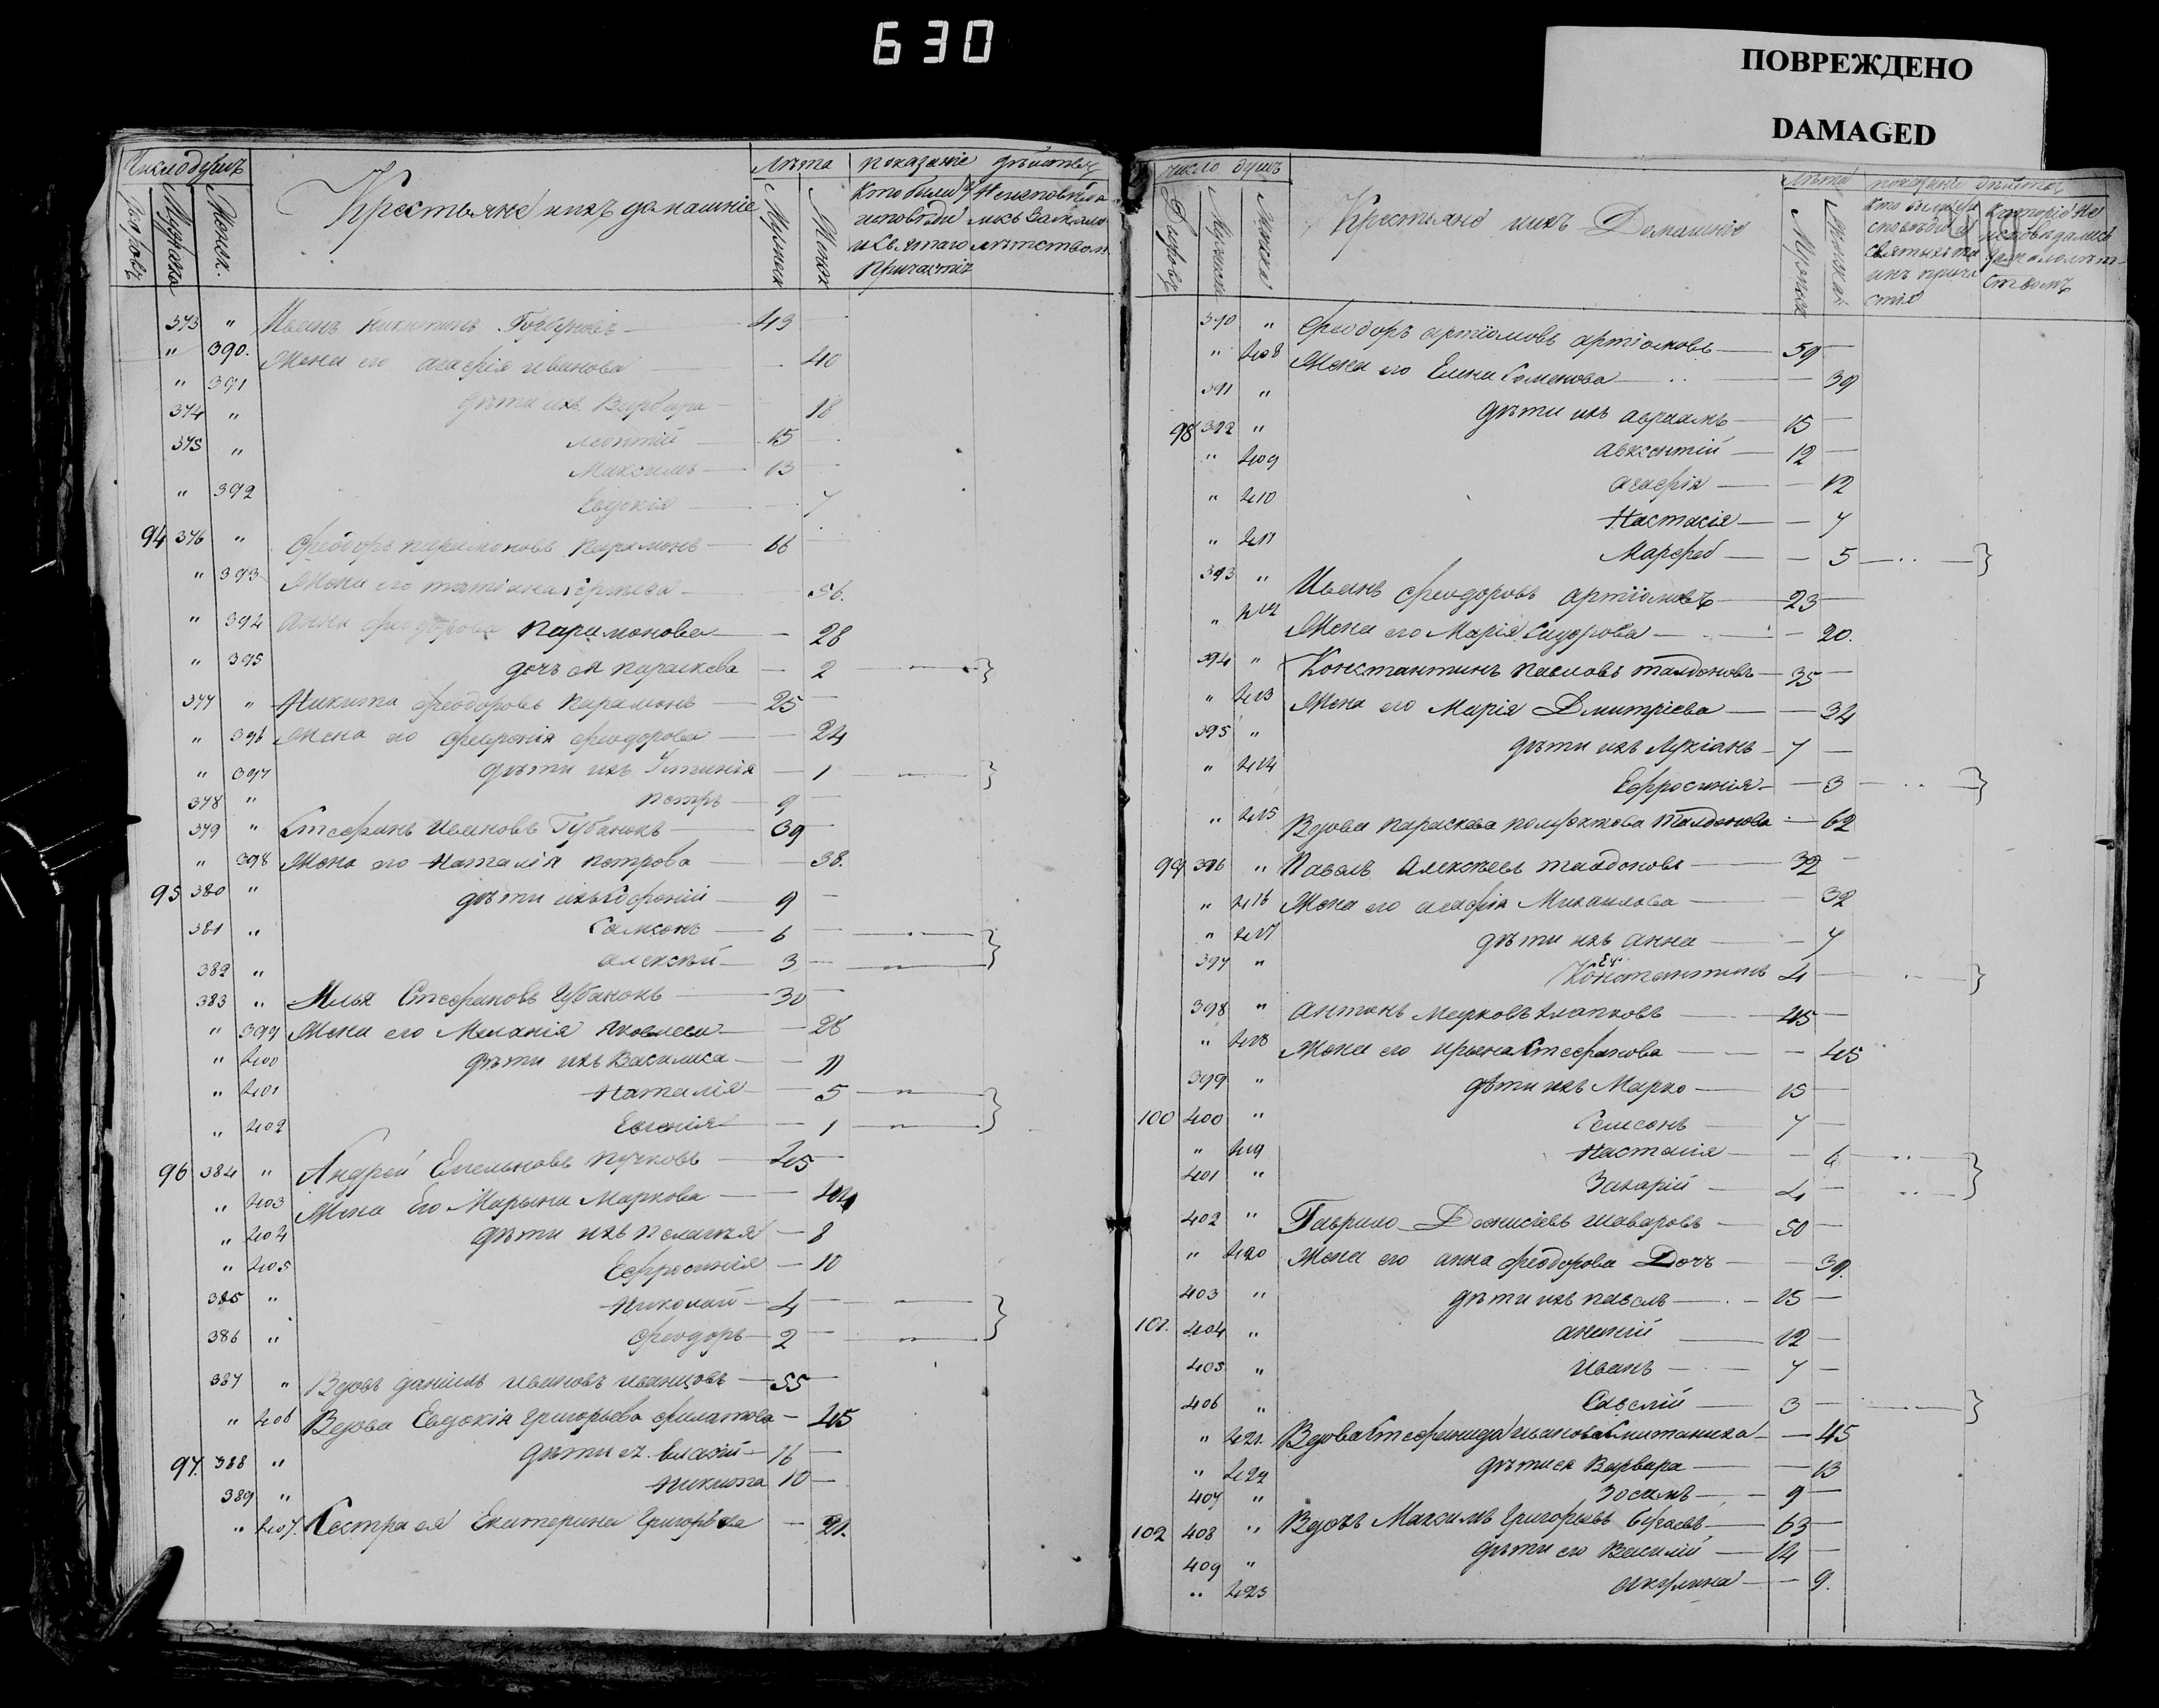 630
ПОВРЕЖДЕНО
DAMAGED
Число душъ
Лѣта показаніе
Крестьяне ихъ домашніе
Мужска Женск.
Кто были у
исповѣди
и Святаго
Причастія
373 " Иванъ Никитинъ 43
" 390. Жена его агафія иванова 40
" 391 дѣти ихъ Варвара 18
374 " леонтій 15
375 " Максимъ 13
" 392 Евдокія 7
94 376 " Феодоръ парамоновъ парамонъ 66
" 393 Жена его татіана Сергѣева 56.
" 394 Анна феодорова парамонова 28
" 395 дочь ея параскева 2
377 " Никита феодоровъ парамонъ 25
" 396 Жена его февронія феодорова 24
" 397 дѣти ихъ Устинія 1
378 " петръ 9
379 " Стефанъ ивановъ Губанокъ 39
" 398 Жена его Наталія петрова 38.
95 380 " дѣти ихъ 9
381 " Самсонъ 6
382 " алексѣй 3
383 " Илья Стефановъ Губанокъ 30
" 399 Жена его Меланія Яковлева 28
" 400 дѣти ихъ Василиса 11
" 401 Наталія 5
" 402 Евгенія 1
96 384 " Андрей Емельновъ пучковъ 45
" 403 Жена Его Марына Маркова 44
" 404 дѣти ихъ пелагея 8
" 405 Ефросинія 10
385 " Николай 4
386 " феодоръ 2
387 " Вдовъ даніилъ ивановъ иванцовъ 55
" 406 Вдова Евдокія григорьева филатова 45
97. 388 " дѣти ея 16
389 " Никита 10
" 407. Сестра ея Екатерина григорьева 21.
число душъ
Лѣта показаніе
Крестьяне ихъ Домашніе
Дворовъ Мужска Женска
390 " Феодоръ артіомовъ артіомовъ 59
" 408 Жена его Елена Семенова 39
391 " дѣти ихъ авраамъ 15
98 392 " авксентій 12
" 409 агафія 12
" 410 Настасія 7
" 411 Марфа 5
393 " Иванъ феодоровъ артіомовъ 23
" 412 Жена его Марія Сидорова 20.
394 " Константинъ павловъ талдоновъ 35
" 413 Жена его Марія Дмитріева 34
395 " дѣти ихъ Лукіанъ 7
" 414 Ефросинія 3
" 415 Вдова параскева талдонова 62
99 396 " Павелъ алексѣевъ талдоновъ 32
" 416 Жена его агафія Михаилова 32
" 417 дѣти ихъ анна 7
397 " Константинъ 4
398 " антонъ марковъ 45
" 418 Жена его ирына Стефанова 45
399 " дѣти ихъ Марко 15
100 400 " Самсонъ 7
" 419 Настасія 6
401 " Захарій 4
402 " Гаврило Денисіевъ шаваровъ 50
" 420 Жена его анна феодорова Дочь 39.
403 " дѣти ихъ павелъ 15
101. 404 " ананій 12
405 " иванъ 7
406 " Савелій 3
" 421. Вдова Стефанида иванова 45
" 422 дѣти ея Варвара 13
407 " Зосимъ 9
102 408 " Вдовъ Максимъ григорьевъ 63
409 " дѣти его Василій 14
" 423 акулина 9.